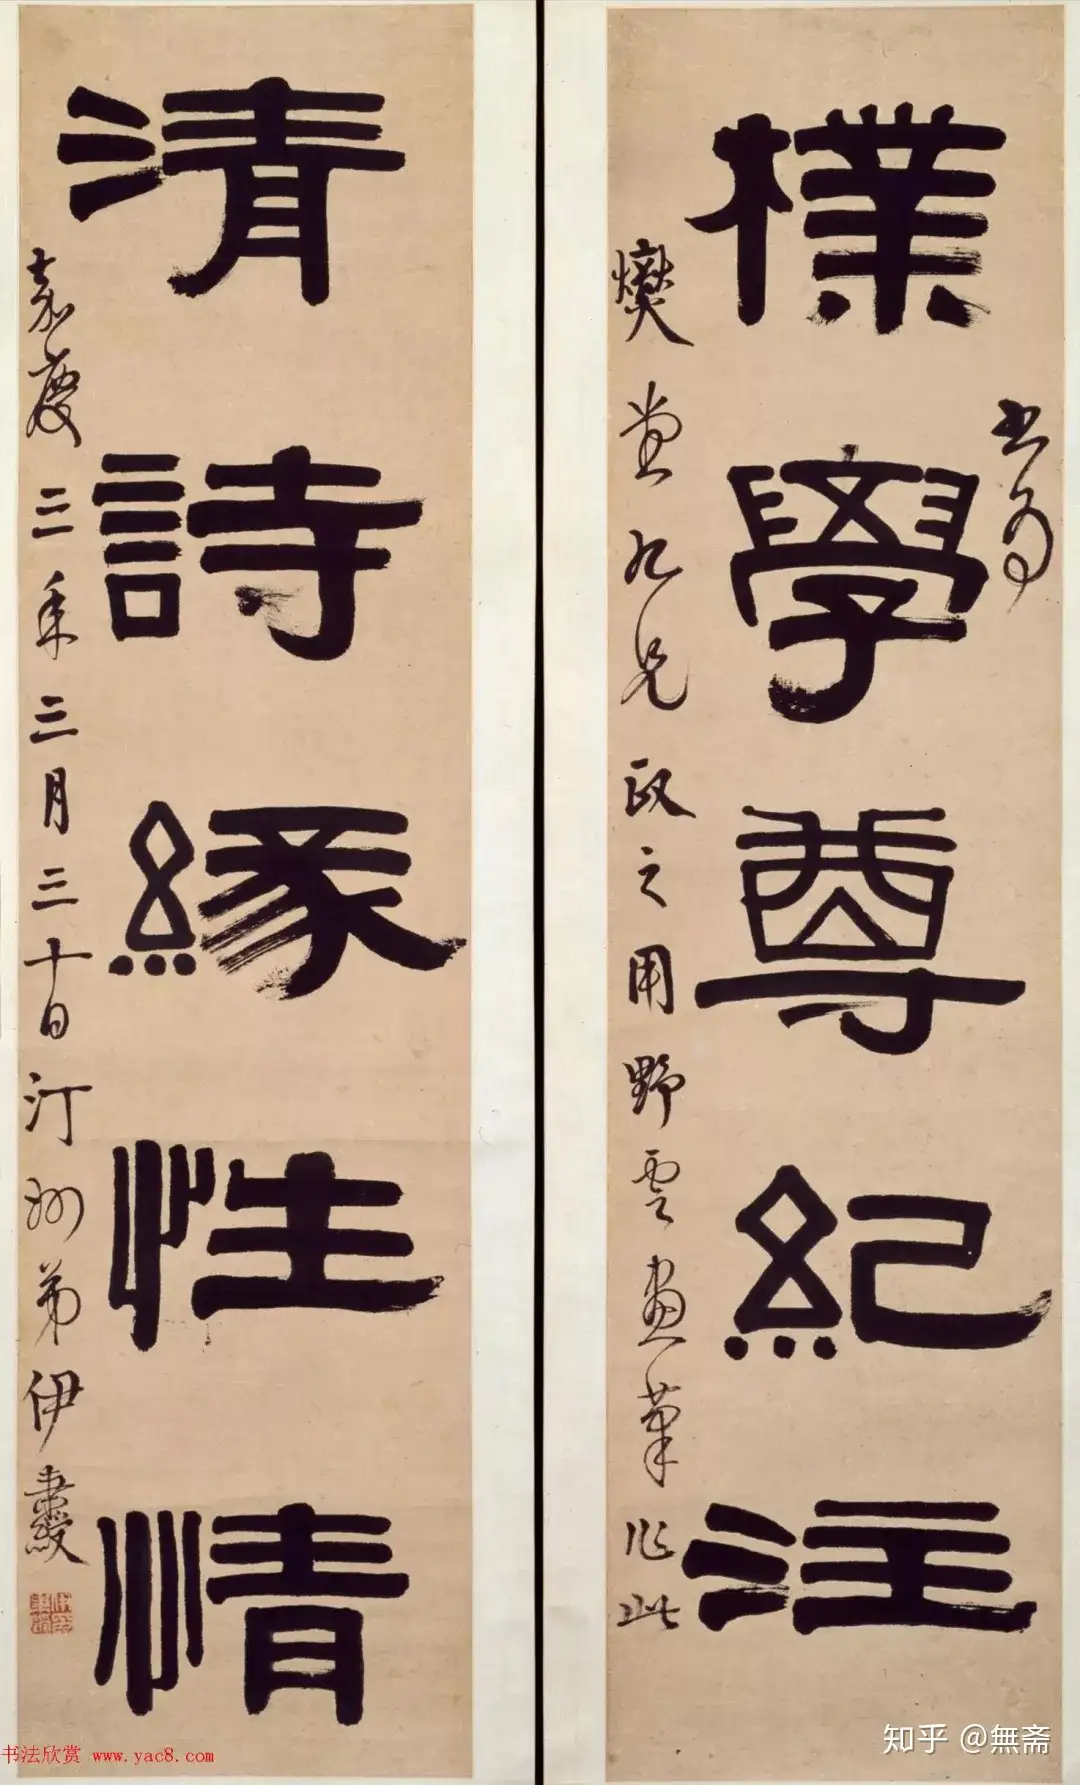 書為
樸學尊紀注
爕堂九兄政之用野雲畫筆作此
清詩緣性情
嘉慶三年三月三十日汀州弟伊秉綬
书法欣赏 www.yac8.com
知乎 @無斋